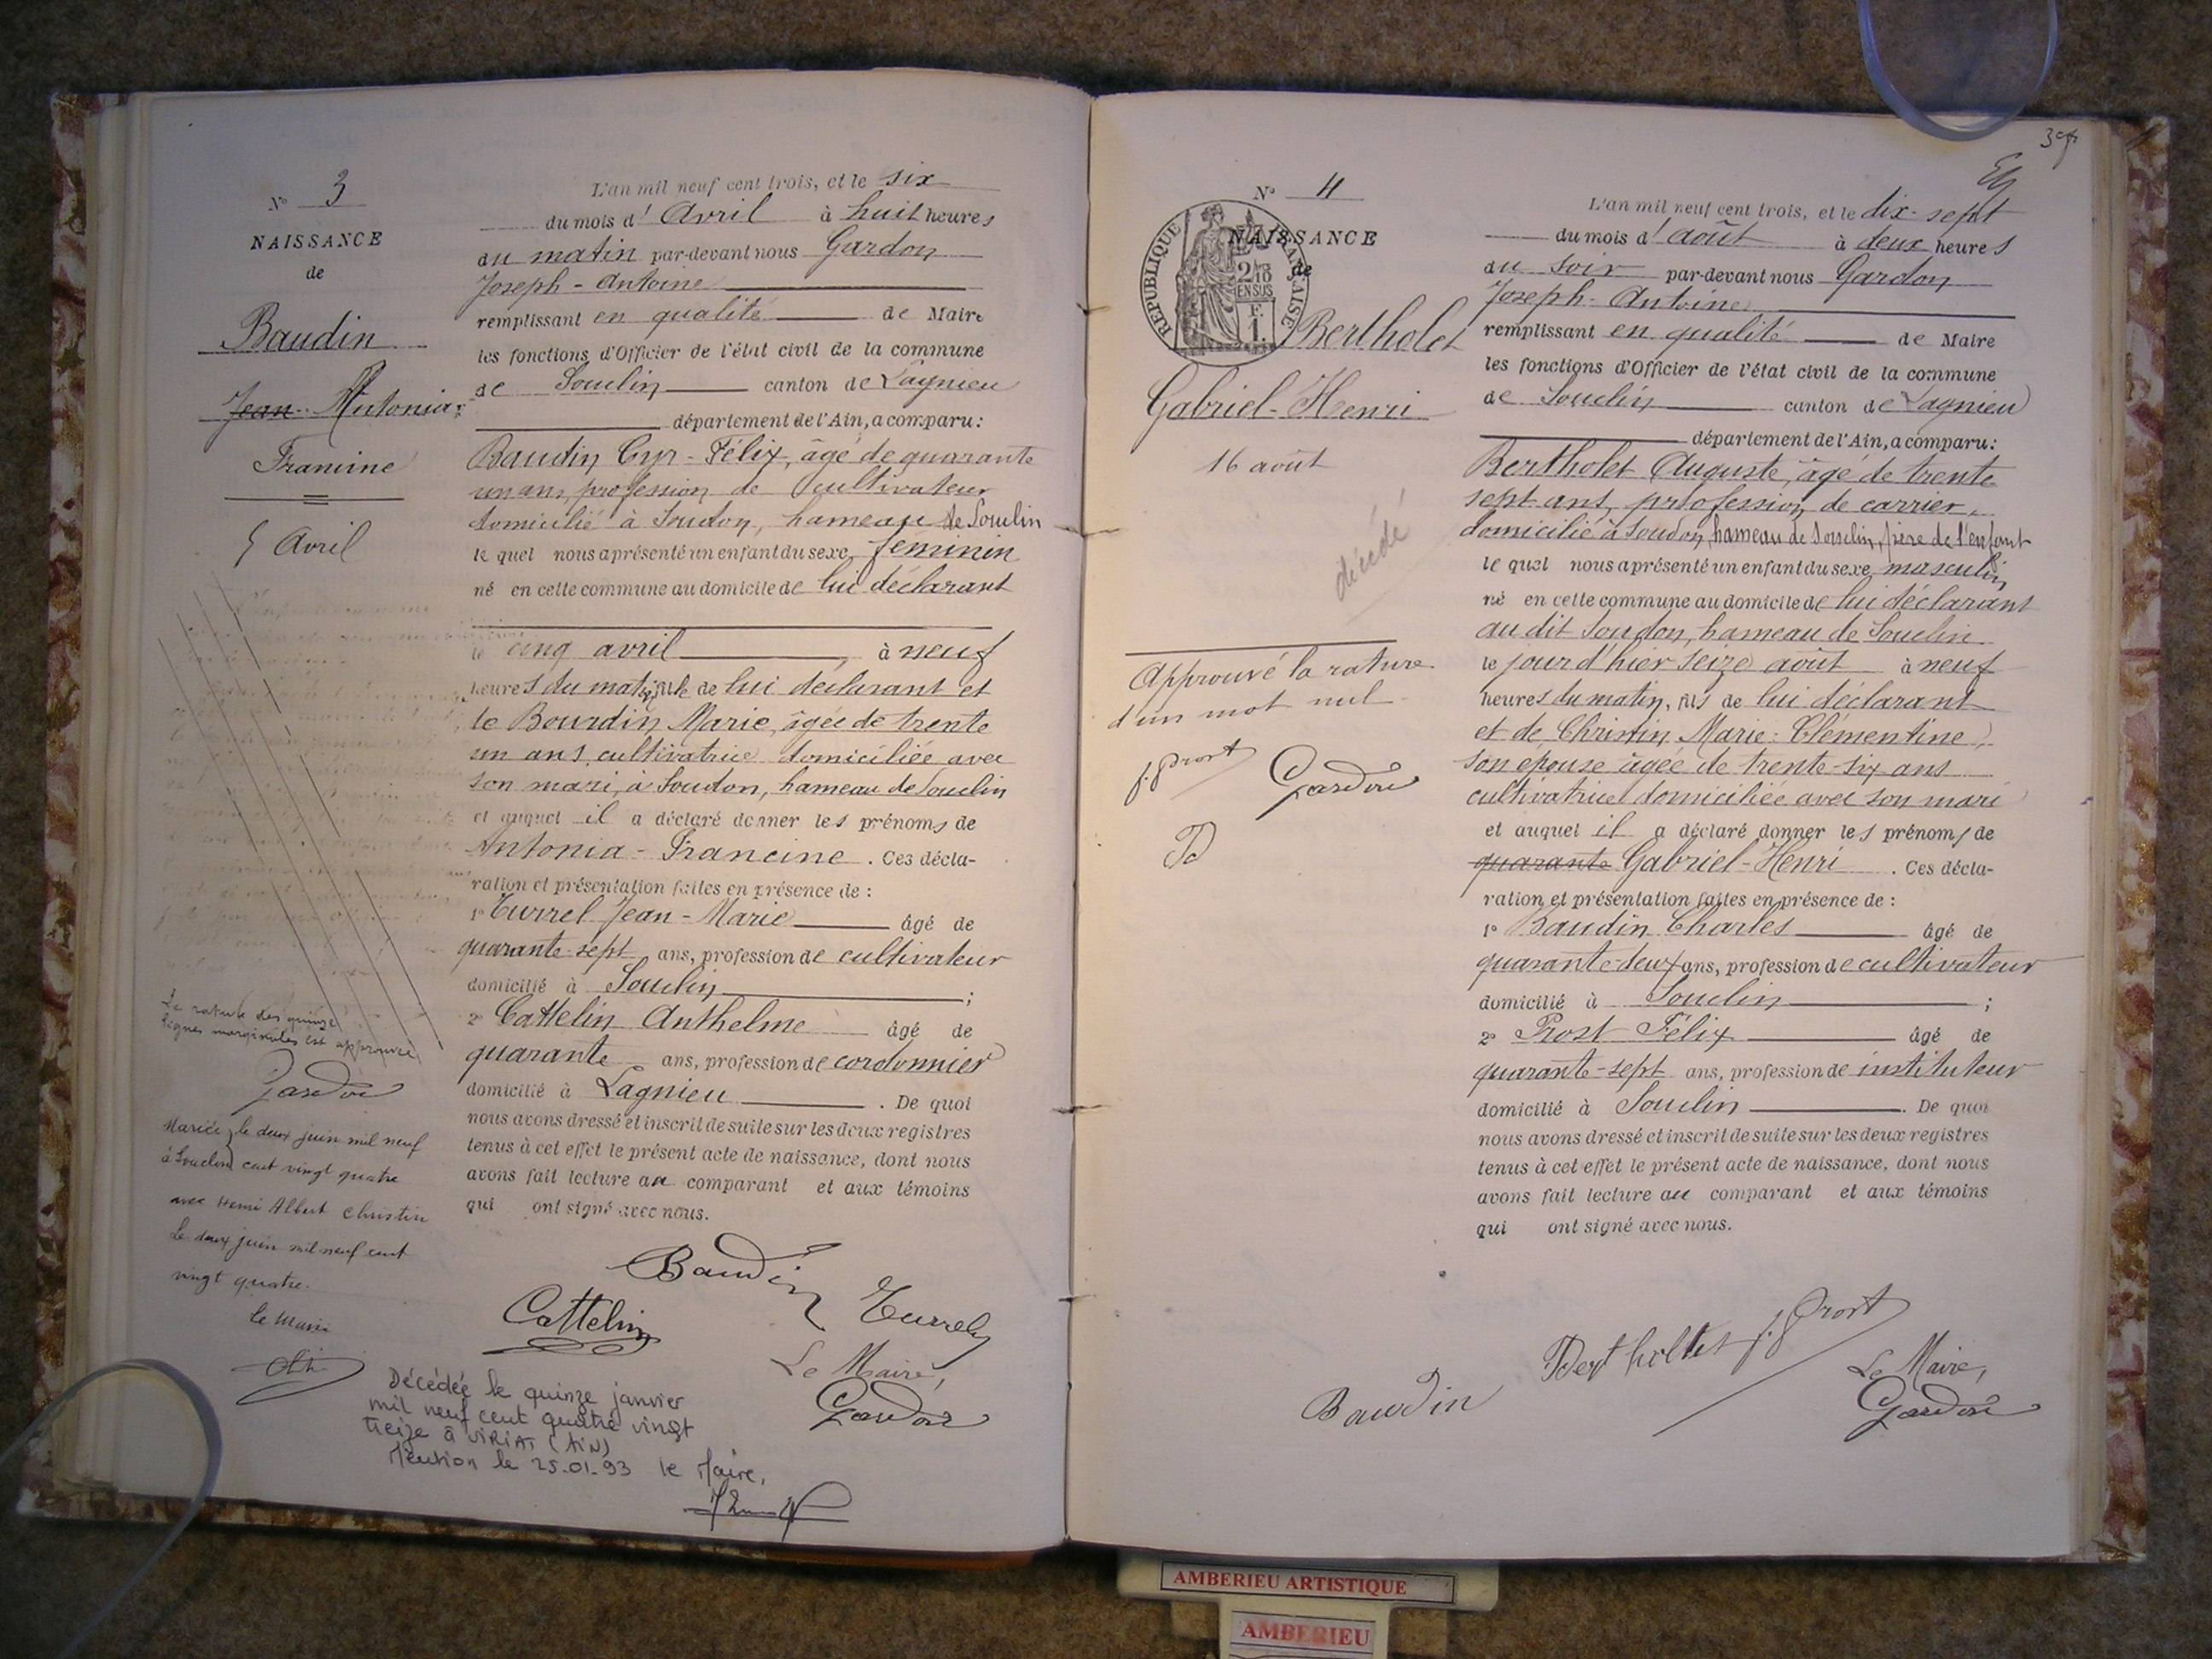 N° 3
NAISSANCE
de
Baudin
Jean Antonia
Francine
5 Avril
La rature des quinze
lignes marginales est approuvée
Gardon
Mariée le deux juin mil neuf
à Souclin cent vingt quatre
avec Henri Albert Christin
Le deux juin mil neuf cent
vingt quatre.
Le Maire
L'an mil neuf cent trois, et le six
du mois d'Avril à huit heures
du matin par-devant nous Gardon
Joseph-Antoine
remplissant en qualité de Maire
les fonctions d'Officier de l'état civil de la commune
de Souclin canton de Lagnieu
département de l'Ain, a comparu:
Baudin Cyr-Félix, âgé de quarante
un ans, profession de cultivateur
domicilié à Soudon, hameau de Souclin
le quel nous a présenté un enfant du sexe féminin
né en cette commune au domicile de lui déclarant
le cinq avril, à neuf
heures du matin, de lui déclarant et
de Bourdin Marie, âgée de trente
un ans, cultivatrice domiciliée avec
son mari, à Soudon, hameau de Souclin
et auquel il a déclaré donner les prénoms de
Antonia-Francine. Ces décla-
ration et présentation faites en présence de :
1° Turrel Jean-Marie âgé de
quarante-sept ans, profession de cultivateur
domicilié à Souclin ;
2° Cattelin Anthelme âgé de
quarante ans, profession de cordonnier
domicilié à Lagnieu. De quoi
nous avons dressé et inscrit de suite sur les deux registres
tenus à cet effet le présent acte de naissance, dont nous
avons fait lecture au comparant et aux témoins
qui ont signé avec nous.
Baudin
Cattelin Turrel
Le Maire,
Gardon
Décédée le quinze janvier
mil neuf cent quatre vingt
treize à VIRIAT (AIN)
Mention le 25-01-93 le Maire,
N° 4
NAISSANCE
de
REPUBLIQUE FRANÇAISE
2/10 EN SUS
F. 1.
Bertholet
Gabriel-Henri
16 août
décédé
Approuvé la rature
d'un mot nul
f. Prost Gardon
L'an mil neuf cent trois, et le dix-sept
du mois d'août à deux heures
du soir par-devant nous Gardon
Joseph-Antoine
remplissant en qualité de Maire
les fonctions d'Officier de l'état civil de la commune
de Souclin canton de Lagnieu
département de l'Ain, a comparu:
Bertholet Auguste, âgé de trente
sept ans, profession de carrier,
domicilié à Soudon, hameau de Souclin, père de l'enfant
le quel nous a présenté un enfant du sexe masculin
né en cette commune au domicile de lui déclarant
au dit Soudon, hameau de Souclin
le jour d'hier seize août à neuf
heures du matin, fils de lui déclarant
et de Christin Marie-Clémentine,
son épouse âgée de trente-six ans
cultivatrice domiciliée avec son mari
et auquel il a déclaré donner les prénoms de
quarante Gabriel-Henri. Ces décla-
ration et présentation faites en présence de :
1° Baudin Charles âgé de
quarante-deux ans, profession de cultivateur
domicilié à Souclin ;
2° Prost Félix âgé de
quarante-sept ans, profession de instituteur
domicilié à Souclin. De quoi
nous avons dressé et inscrit de suite sur les deux registres
tenus à cet effet le présent acte de naissance, dont nous
avons fait lecture au comparant et aux témoins
qui ont signé avec nous.
Baudin f. Prost
Le Maire,
Gardon
AMBERIEU ARTISTIQUE
AMBERIEU